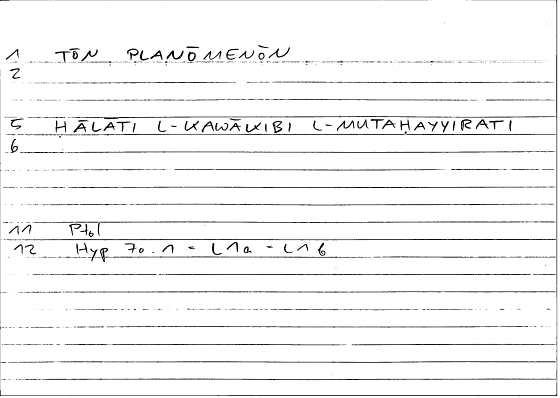 1 TŌN PLANŌMENŌN
2
5 ḤĀLĀTI L-KAWĀKIBI L-MUTAḤAYYIRATI
6
11 Ptol
12 Hyp 70.1 = L1a - L1b